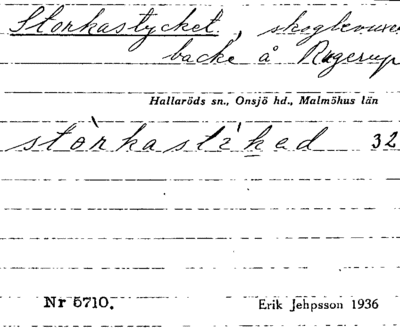 Storkastycket, skogbevuxen
backe å Rugerup
Hallaröds sn., Onsjö hd., Malmöhus län
stòrkastíked 32
Nr 5710. Erik Jehpsson 1936